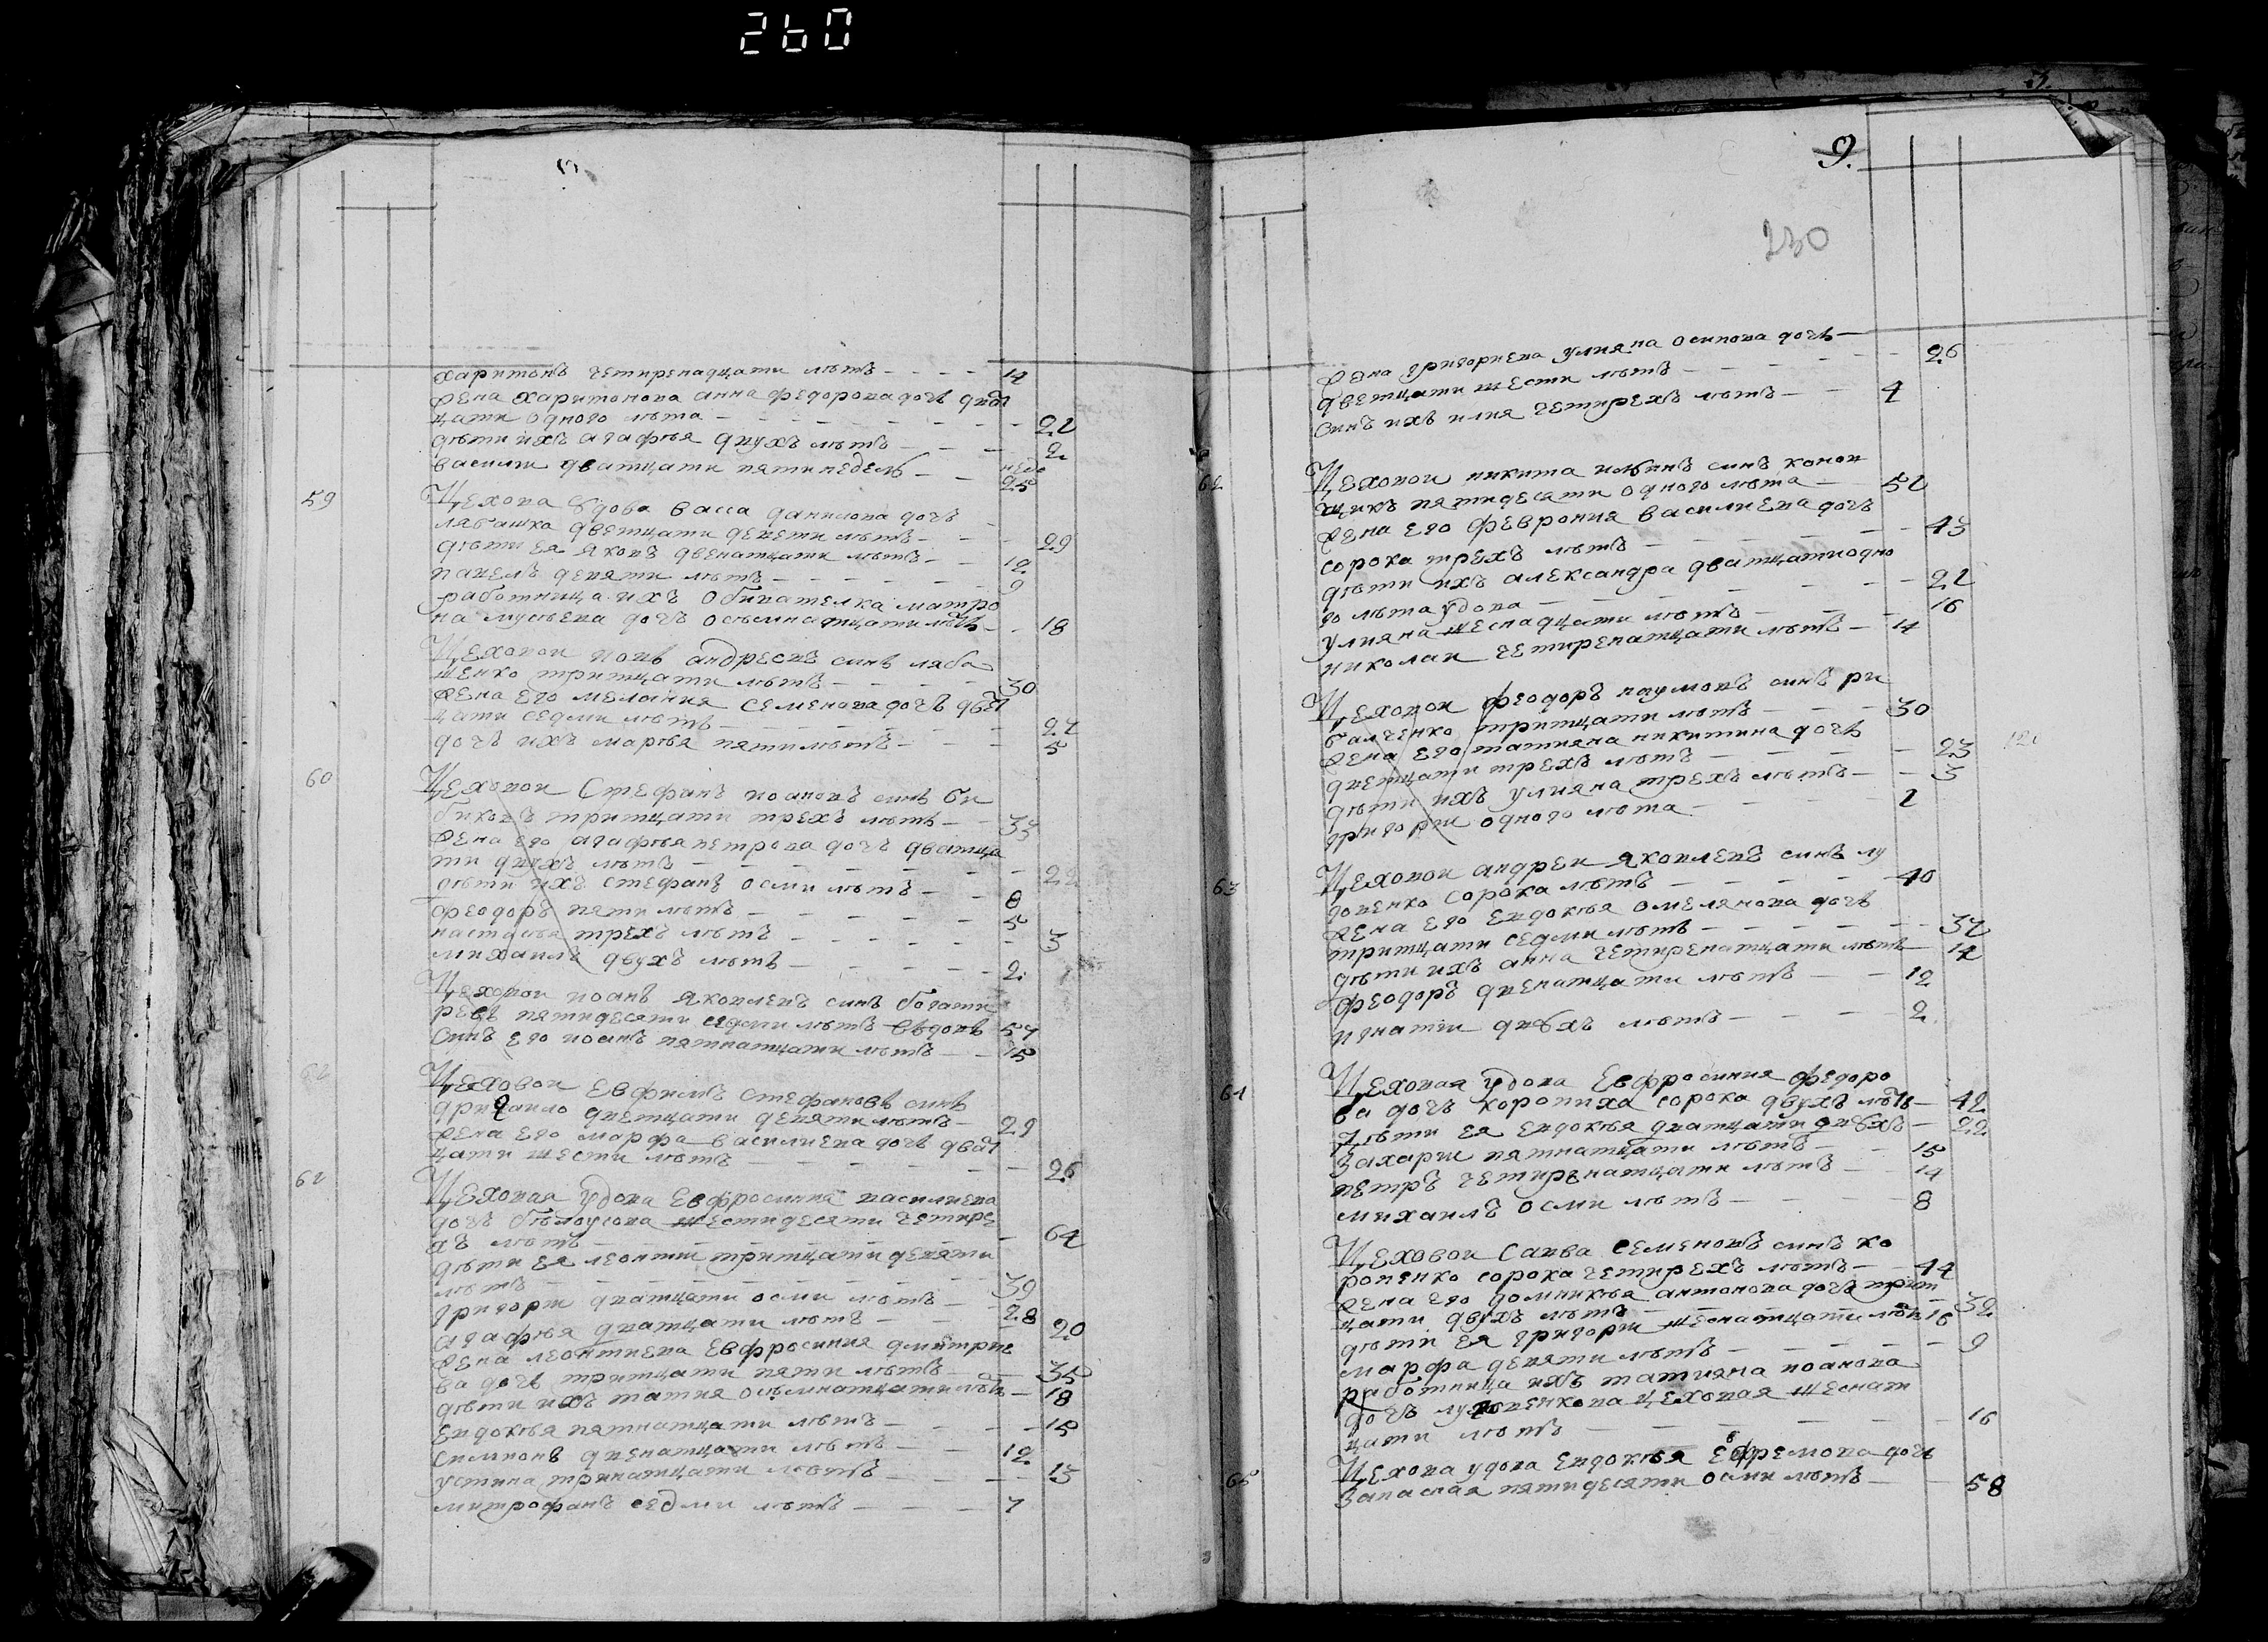 260
харитонъ четиренадцати лѣтъ - - - - 14
жена харитонова анна федорова дочь двад
цати одного лѣта - - - - - - - 21
дѣти ихъ агафѣя двухъ лѣтъ - - - 2
василии дватцати пяти недель - - неде 25
59 Цехова вдова васса данилова дочь
лябашка дветцати девети лѣтъ - - - 29
дѣти ея яковъ двенатцати лѣтъ - - 12
павелъ девяти лѣтъ - - - - - - 9
работница ихъ обивателка матро
на мусѣева дочь осѣмнатцати лѣтъ - - 18
Цеховои иовъ андреевъ синъ ляба
щенко тритцати лѣтъ - - - - 30
жена его мелания семенова дочь двет
цати седми лѣтъ - - - - - - 27
дочь ихъ марѣя пяти лѣтъ - - - 5
60 Цеховои Стефанъ иоановъ синъ би
биковъ тритцати трехъ лѣтъ - - 33
жена его агафѣя петрова дочь дватца
ти двухъ лѣтъ - - - - - - - 22
дѣти ихъ стефанъ осми лѣтъ - - 8
феодоръ пяти лѣтъ - - - - - - 5
настасѣя трехъ лѣтъ - - - - - - 3
михаилъ двухъ лѣтъ - - - - - 2
Цеховои иоанъ яковлевъ синъ богати
ревъ пятидесяти седми лѣтъ вѣдовъ 57
Синъ его иоанъ пятнатцати лѣтъ - - 15
Цеховои Евфимъ Стефановъ синъ
дветцати девяти лѣтъ - 29
жена его марфа василиева дочь двад
цати шести лѣтъ - - - - - - - 26
Цеховая удова Евфросиния василиева
дочь бѣлоусова шестидесяти четире
хъ лѣтъ - - - - - - - - - 64
дѣти ея леонтии тритцати девяти
лѣтъ - - - - - - - - - 39
григории дватцати осми лѣтъ - - 28
агафѣя дватцати лѣтъ - - - 20
жена леонтиева Евфросиния дмитрие
ва дочь тритцати пяти лѣтъ - - 35
дѣти ихъ татия осѣмнатцати лѣтъ - 18
евдокѣя пятнатцати лѣтъ - - - - 15
симионъ двенатцати лѣтъ - - - 12
устина тринатцати лѣтъ - - - - 13
митрофанъ седми лѣтъ - - - - 7
9.
230
жена григориева улияна осипова дочь -
дветцати шести лѣтъ - - - - - - 26
синъ ихъ илия четирехъ лѣтъ - - 4
62 Цеховои никита илѣинъ синъ конов
щикъ пятидесяти одного лѣта - 51
жена его феврония василиева дочь
сорока трехъ лѣтъ - - - - - - 43
дѣти ихъ александра дватцати одно
го лѣта удова - - - - - - - 21
улияна шеснадцати лѣтъ - - - 16
николаи четиренатцати лѣтъ - 14
Цеховои феодоръ наумовъ синъ ри
балченко тритцати лѣтъ - - - 30
жена его татияна никитина дочь
дветцати трехъ лѣтъ - - - - - 23
дѣти ихъ улияна трехъ лѣтъ - - 3
григории одного лѣта - - - - - 1
63 Цеховои андреи яковлевъ синъ лу
ценко сорока лѣтъ - - - - - 40
жена его евдокѣя омелянова дочь
тритцати седми лѣтъ - - - - - - 37
дѣти ихъ анна четиренатцати лѣтъ - 14
феодоръ двенатцати лѣтъ - - - 12
игнатии двухъ лѣтъ - - - - 2
64 Цеховая удова Евфросиния федоро
ва дочь коропиха сорока двухъ лѣтъ - 42
Дѣти ея евдокѣя дватцати двухъ - 22
захарии пятнатцати лѣтъ - - 15
петръ четирнатцати лѣтъ - - 14
михаилъ осми лѣтъ - - - - 8
Цеховои Савва семеновъ синъ ко
ропенко сорока четирехъ лѣтъ - - 44
жена его домникѣя антонова дочь трит
цати двухъ лѣтъ - - - - - - - 32
дѣти ея григории шеснатцати лѣтъ 16
марфа девяти лѣтъ - - - - - - 9
работница ихъ татияна иоанова
дочь цеховая шеснат
цати лѣтъ - - - - - - - 16
65 Цехова удова евдокѣя ефремова дочь
запасная пятидесяти осми лѣтъ - 58